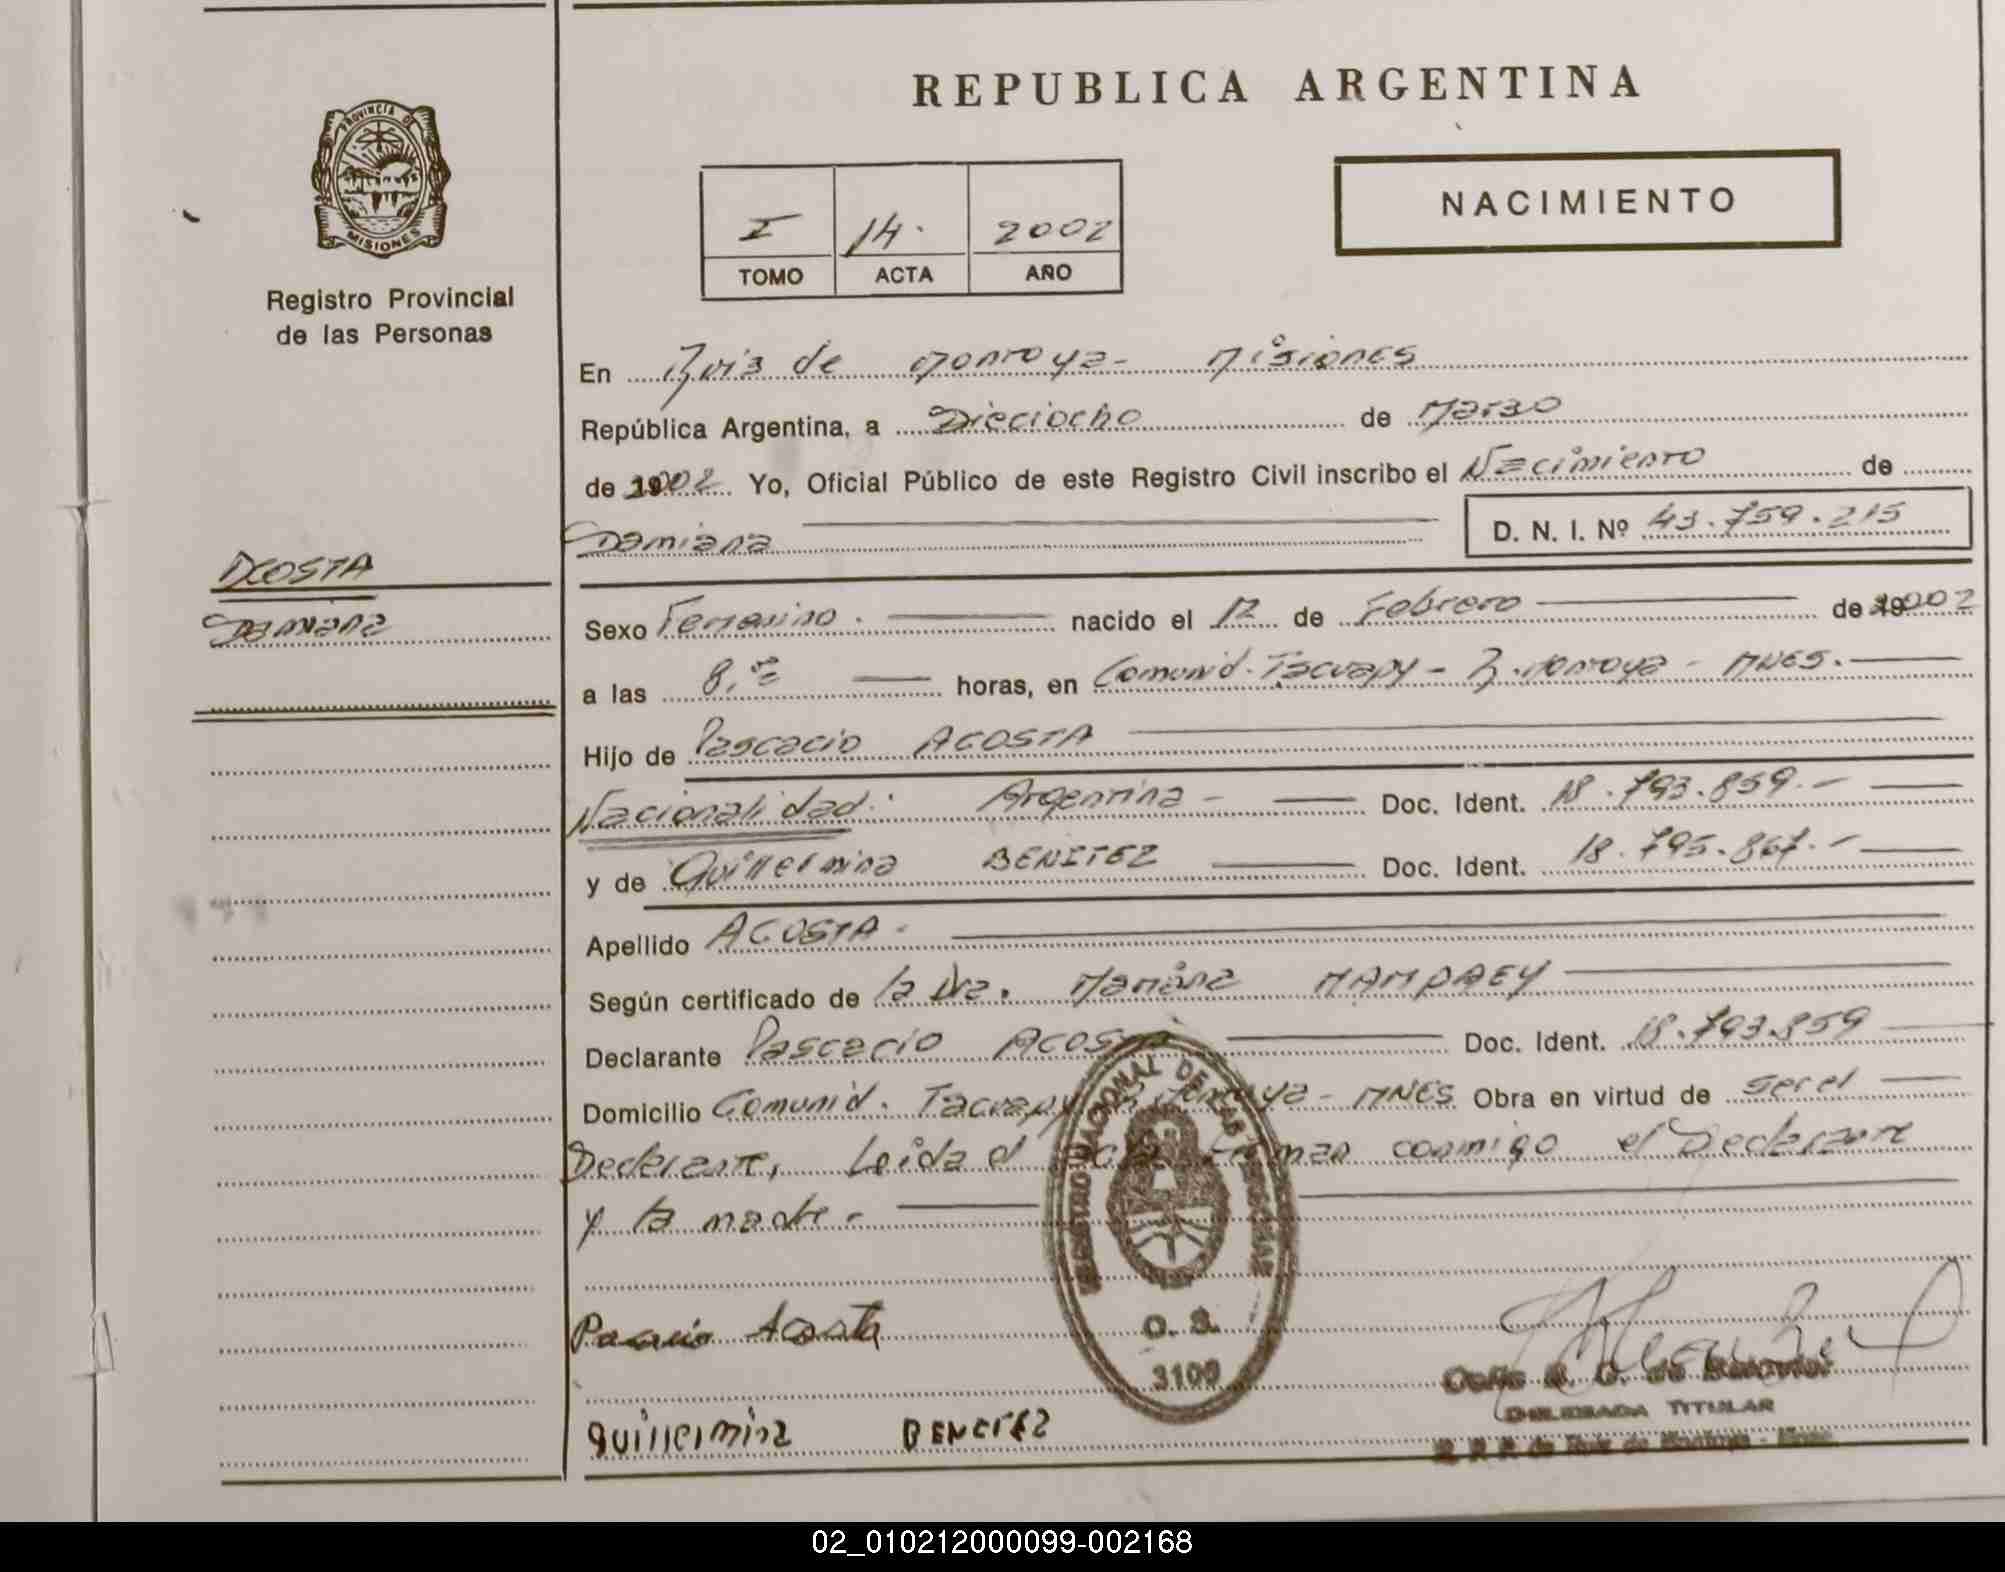 REPUBLICA ARGENTINA
PROVINCIA DE MISIONES
Registro Provincial
de las Personas
I 14. 2002
TOMO ACTA AÑO
NACIMIENTO
En Ruiz de Montoya - Misiones
República Argentina, a Dieciocho de Marzo
de 2002 Yo, Oficial Público de este Registro Civil inscribo el Nacimiento de
Damiana D. N. I. Nº 43.759.215
ACOSTA
Damiana
Sexo Femenino. nacido el 12 de Febrero de 2002
a las 8, horas, en Comunid. Tacuapy - R. Montoya - MNES.
Hijo de Pascacio ACOSTA
Nacionalidad: Argentina - Doc. Ident. 18.793.859.-
y de Guillermina BENITEZ Doc. Ident. 18.795.867.-
Apellido ACOSTA -
Según certificado de la Dra. Mariana MAMPAEY
Declarante Pascacio ACOSTA Doc. Ident. 18.793.859
Domicilio Comunid. Tacuapy R. Montoya - MNES Obra en virtud de ser el
Declarante, Leida el acta firman conmigo el Declarante
y la madre -
REGISTRO NACIONAL DE LAS PERSONAS
O. S.
3109
Acosta
Guillermina BENITEZ
DELEGADA TITULAR
02_010212000099-002168